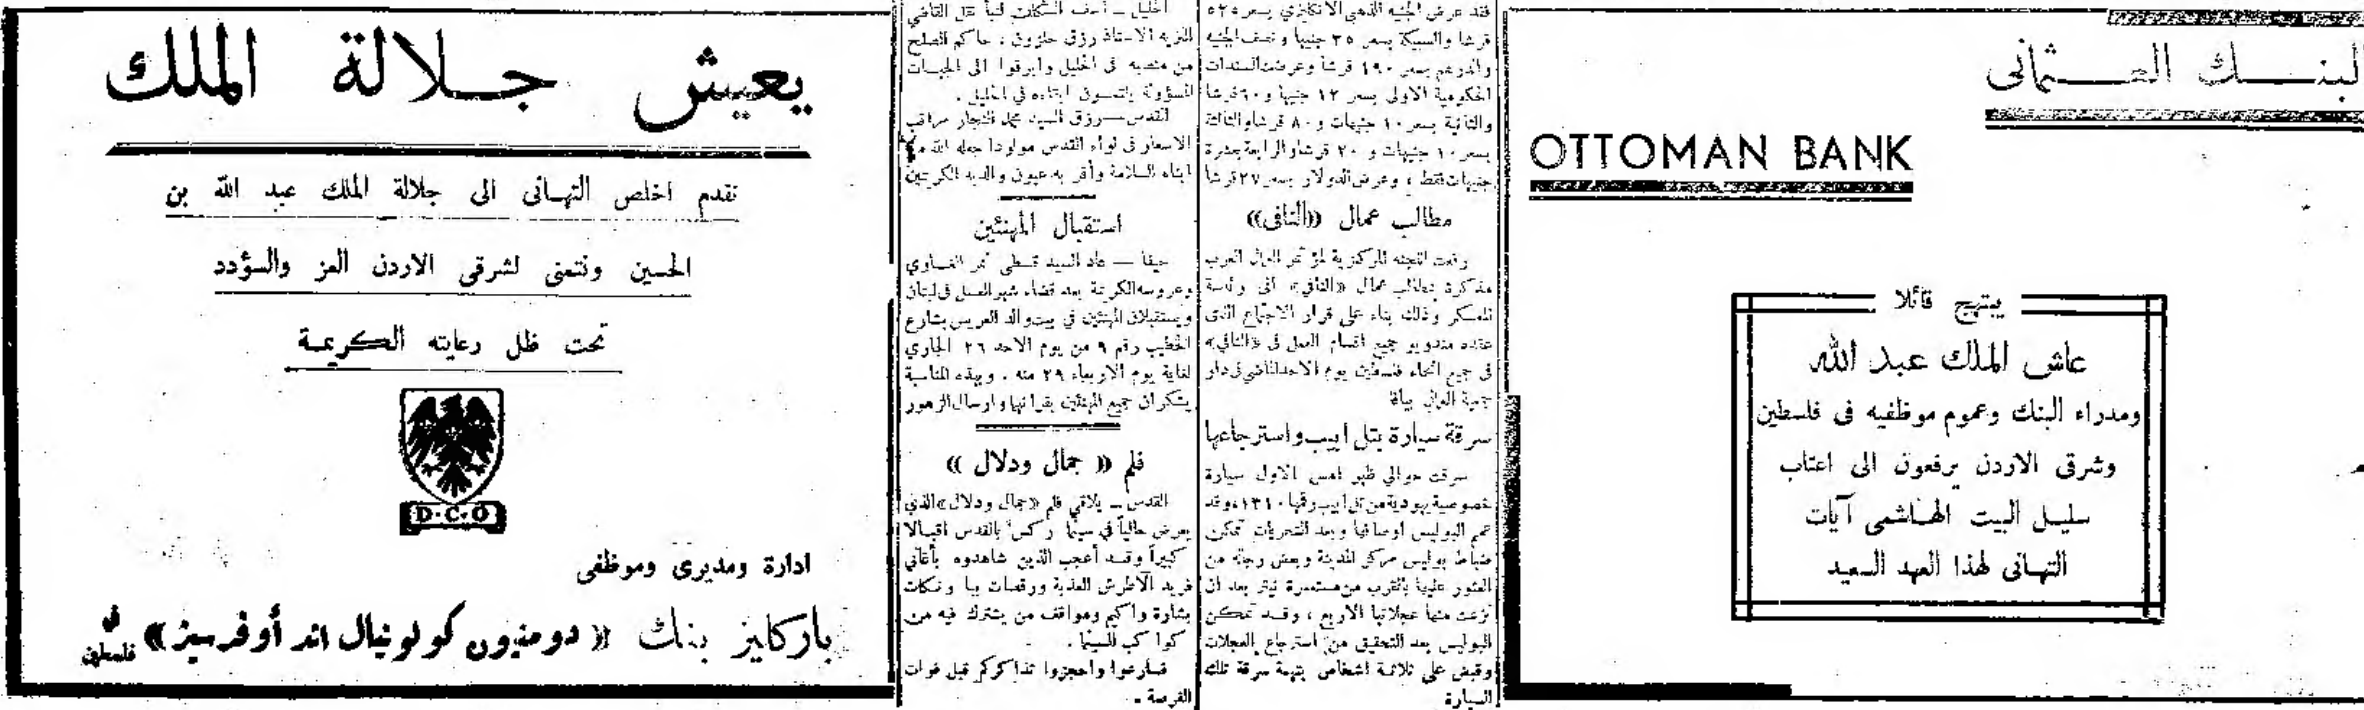 البنك العثمانى
OTTOMAN BANK
يبتهج قائلا
عاش الملك عبد الله
ومدراء البنك وعموم موظفيه فى فلسطين
وشرقى الاردن يرفعون الى اعتاب
سليل البيت الهاشمى آيات
التهانى لهذا العهد السعيد
فقد عرض الجنيه الذهبي الانكليزي بسعر ٥٢٥
قرشا والسبيكة بسعر ٢٥ جنيها ونصف الجنيه
والدرهم بسعر ١٩٠ قرشا وعرضت السندات
الحكومية الاولى بسعر ١٢ جنيها و ٦٠ قرشا
والثانية بسعر ١٠ جنيهات و ٨٠ قرشا والثالثة
بسعر ١٠ جنيهات و ٢٠ قرشا والرابعة بعشرة
جنيهات فقط ، وعرض الدولار بسعر ٢٧ قرشا
مطالب عمال «النافى»
رفعت اللجنه المركزية لمؤتمر العمال العرب
مذكرة بمطالب عمال «النافي» الى رئاسة
المعسكر وذلك بناء على قرار الاجتماع الذى
عقده مندوبو جميع اقسام العمل فى «النافي»
فى جميع انحاء فلسطين يوم الاحد الماضي فى دار
جمعية العمال بيافا
سرقة سيارة بتل ابيب واسترجاعها
سرقت حوالي ظهر امس الاول سيارة
خصوصية يهودية من تل ابيب رقمها ١٣١٠ وقد
عمم البوليس اوصافها وبعد التحريات تمكن
ضباط بوليس مركز المدينة وبعض رجاله من
العثور عليها بالقرب من مستعمرة نيتر بعد ان
نزعت منها عجلاتها الاربع ، وقد تمكن
البوليس بعد التحقيق من استرجاع العجلات
وقبض على ثلاثة اشخاص بتهمة سرقة تلك
السيارة
الخليل — أسف السكان لنبأ نقل القاضي
النزيه الاستاذ رزق حلزون ، حاكم الصلح
من منصبه فى الخليل وابرقوا الى الجهات
المسؤولة يلتمسون ابقاءه في الخليل .
القدس — رزق السيد محمد النجار مراقب
الاسعار فى لواء القدس مولودا جعله الله من
ابناء السلامة وأقر به عيون والديه الكريمين
استقبال المهنئين
حيفا — عاد السيد قسطى نمر
وعروسه الكريمة بعد قضاء شهر العسل فى لبنان
ويستقبلان المهنئين في بيت والد العريس بشارع
الخطيب رقم ٩ من يوم الاحد ٢٦ الجاري
لغاية يوم الاربعاء ٢٩ منه . وبهذه المناسبة
يشكران جميع المهنئين بقرانهما وارسال الزهور
فلم « جمال ودلال »
القدس — يلاقي فلم «جمال ودلال» الذي
يعرض حالياً في سينما ركس بالقدس اقبالا
كبيراً وقد أعجب الذين شاهدوه بأغاني
فريد الاطرش العذبة ورقصات ببا ونكات
بشارة واكيم ومواقف من يشترك فيه من
كواكب السينما .
فسارعوا واحجزوا تذاكركم قبل فوات
الفرصة .
يعيش جلالة الملك
نقدم اخلص التهانى الى جلالة الملك عبد الله بن
الحسين ونتمنى لشرقى الاردن العز والسؤدد
تحت ظل رعايته الكريمة
D.C.O
ادارة ومديرى وموظفى
باركليز بنك «دومنيون كولونيال اند أوفرسيز» فى فلسطين